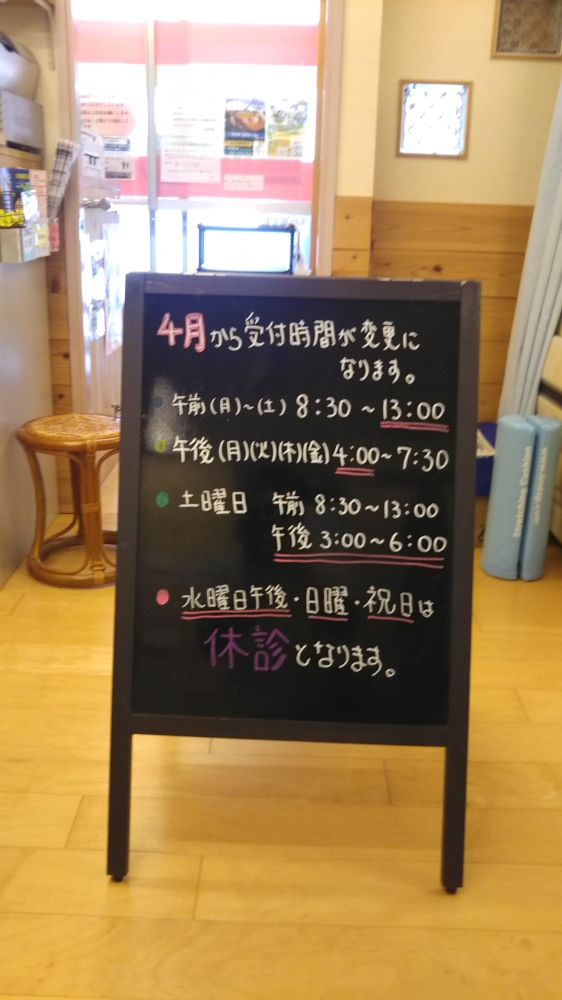 4月から受付時間が変更に
なります。
午前(月)~(土) 8:30 ~13:00
午後(月)(火)(木)(金)4:00~7:30
土曜日 午前 8:30~13:00
午後 3:00~6:00
水曜日午後・日曜・祝日は
休診となります。
Stretching Cushion